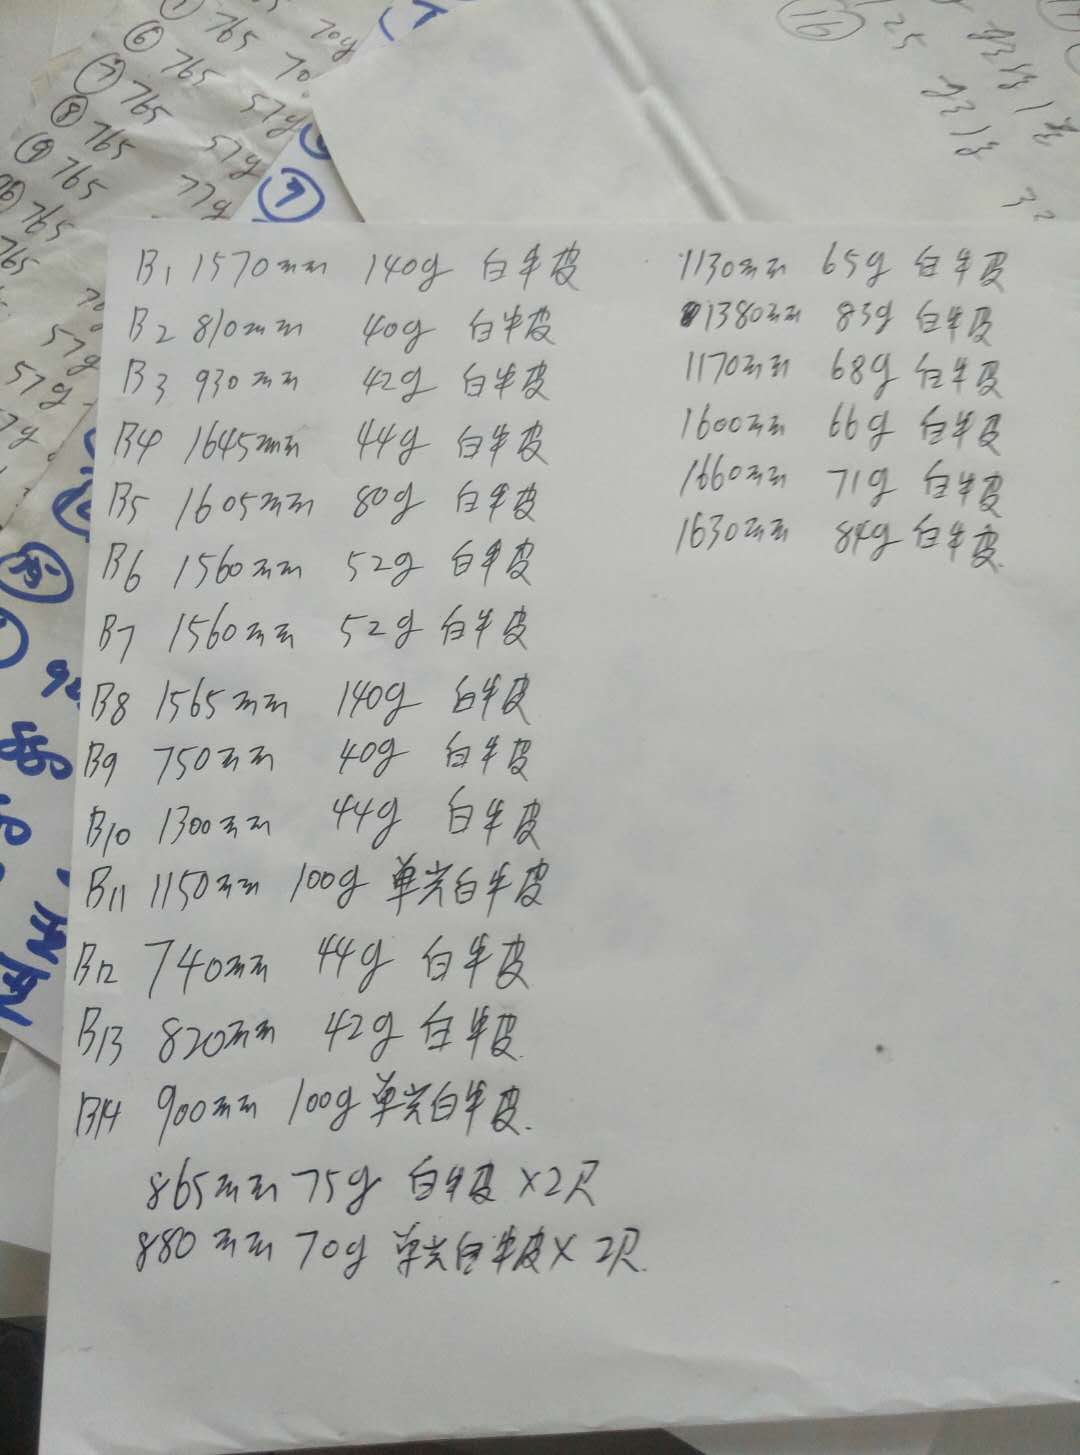 B1 1570mm 140g 白牛皮
B2 810mm 40g 白牛皮
B3 930mm 42g 白牛皮
B4 1645mm 44g 白牛皮
B5 1605mm 80g 白牛皮
B6 1560mm 52g 白牛皮
B7 1560mm 52g 白牛皮
B8 1565mm 140g 白牛皮
B9 750mm 40g 白牛皮
B10 1300mm 44g 白牛皮
B11 1150mm 100g 单光白牛皮
B12 740mm 44g 白牛皮
B13 820mm 42g 白牛皮
B14 900mm 100g 单光白牛皮
865mm 75g 白牛皮×2只
880mm 70g 单光白牛皮×2只
1130mm 65g 白牛皮
1380mm 83g 白牛皮
1170mm 68g 白牛皮
1600mm 66g 白牛皮
1660mm 71g 白牛皮
1630mm 84g 白牛皮
765 70g
⑥ 765 70
⑦ 765 57g
⑧ 765 57g
⑨ 765 77g
765
765
57g
57g
⑯ 25
32